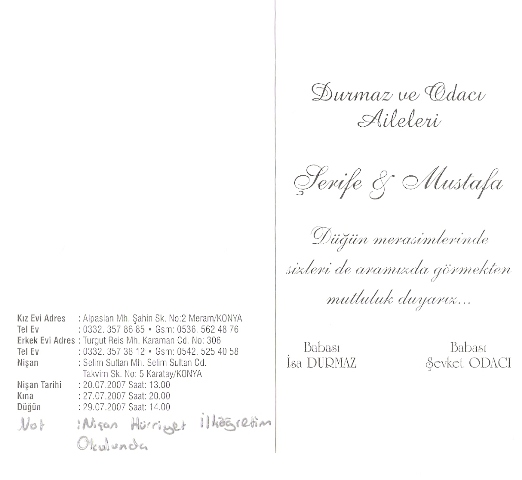 Durmaz ve Odacı
Aileleri
Şerife & Mustafa
Düğün merasimlerinde
sizleri de aramızda görmekten
mutluluk duyarız...
Babası
İsa DURMAZ
Babası
Şevket ODACI
Kız Evi Adres : Alpaslan Mh. Şahin Sk. No:2 Meram/KONYA
Tel Ev : 0332. 357 86 85 • Gsm: 0536. 562 48 76
Erkek Evi Adres : Turgut Reis Mh. Karaman Cd. No: 306
Tel Ev : 0332. 357 38 12 • Gsm: 0542. 525 40 58
Nişan : Selim Sultan Mh. Selim Sultan Cd.
Takvim Sk. No: 5 Karatay/KONYA
Nişan Tarihi : 20.07.2007 Saat: 13.00
Kına : 27.07.2007 Saat: 20.00
Düğün : 29.07.2007 Saat: 14.00
Not : Nişan Hürriyet İlköğretim
Okulunda